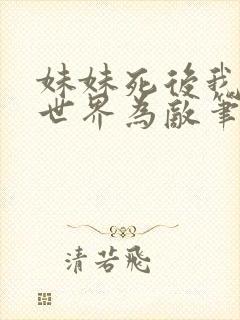 妹妹死後我
世界為敵筆
清若飛